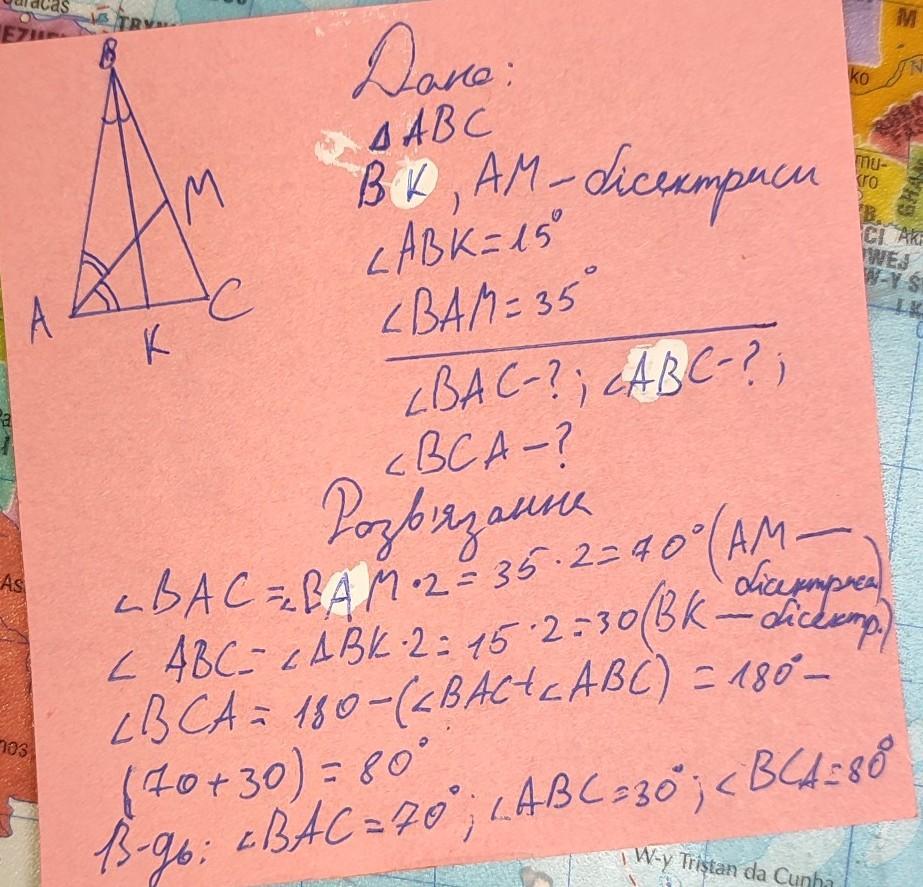 aracas
TRYN
EZUE
B
M
A
K
C
Дано:
△ABC
BK, AM – бісектриси
∠ABK = 15°
∠BAM = 35°
∠BAC - ?; ∠ABC - ?;
∠BCA - ?
Розв'язання
∠BAC = ∠BAM · 2 = 35 · 2 = 70° (AM — бісектриса)
∠ABC = ∠ABK · 2 = 15 · 2 = 30 (BK — бісектр.)
∠BCA = 180 - (∠BAC + ∠ABC) = 180° -
(70 + 30) = 80°
В-дь: ∠BAC = 70°; ∠ABC = 30°; ∠BCA = 80°
W-y Tristan da Cunha